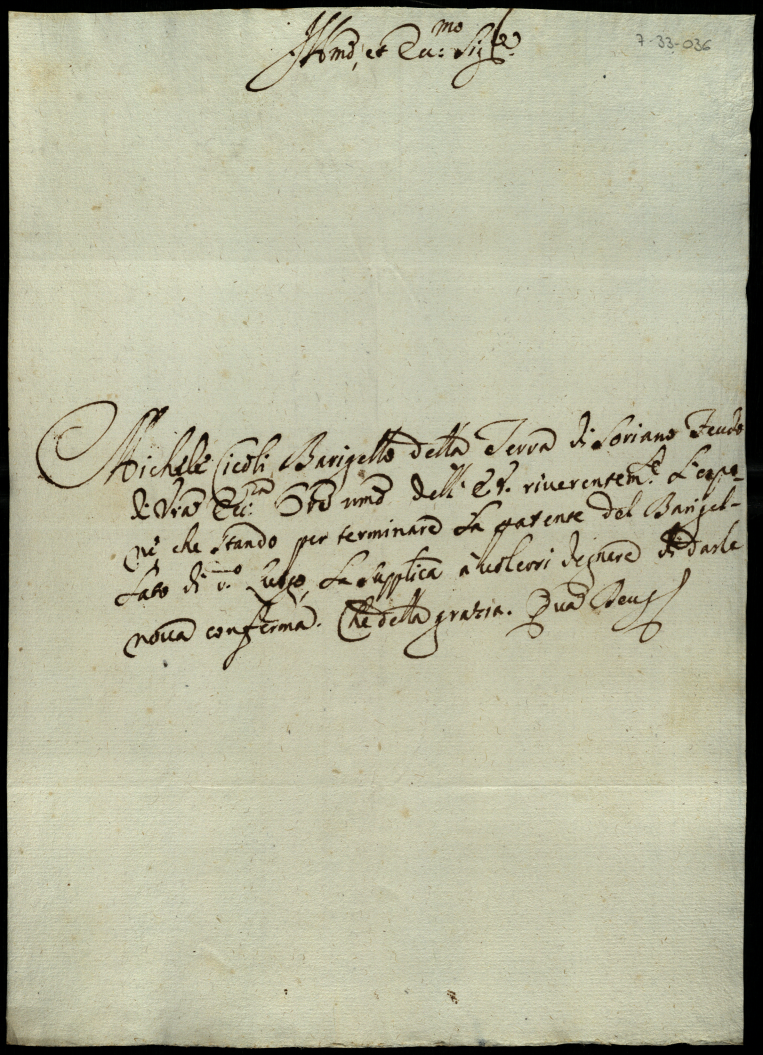 Ill.mo, et Ecc.mo Sig.re
7-33-036
Michele Cicoli Barigello della Terra di Soriano Feudo
di Vra Ecc.za Ore umo dell' E.V. riverentem.te L'espo-
ne che stando per terminare la patente del Barigel-
lato di d.o Luogo, La supplica à volersi degnare di darle
nova conferma. Che della grazia. Qua Deus